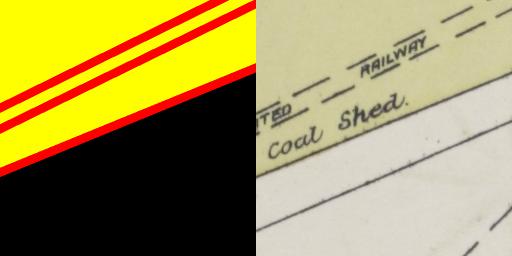 TED RAILWAY
Coal Shed.